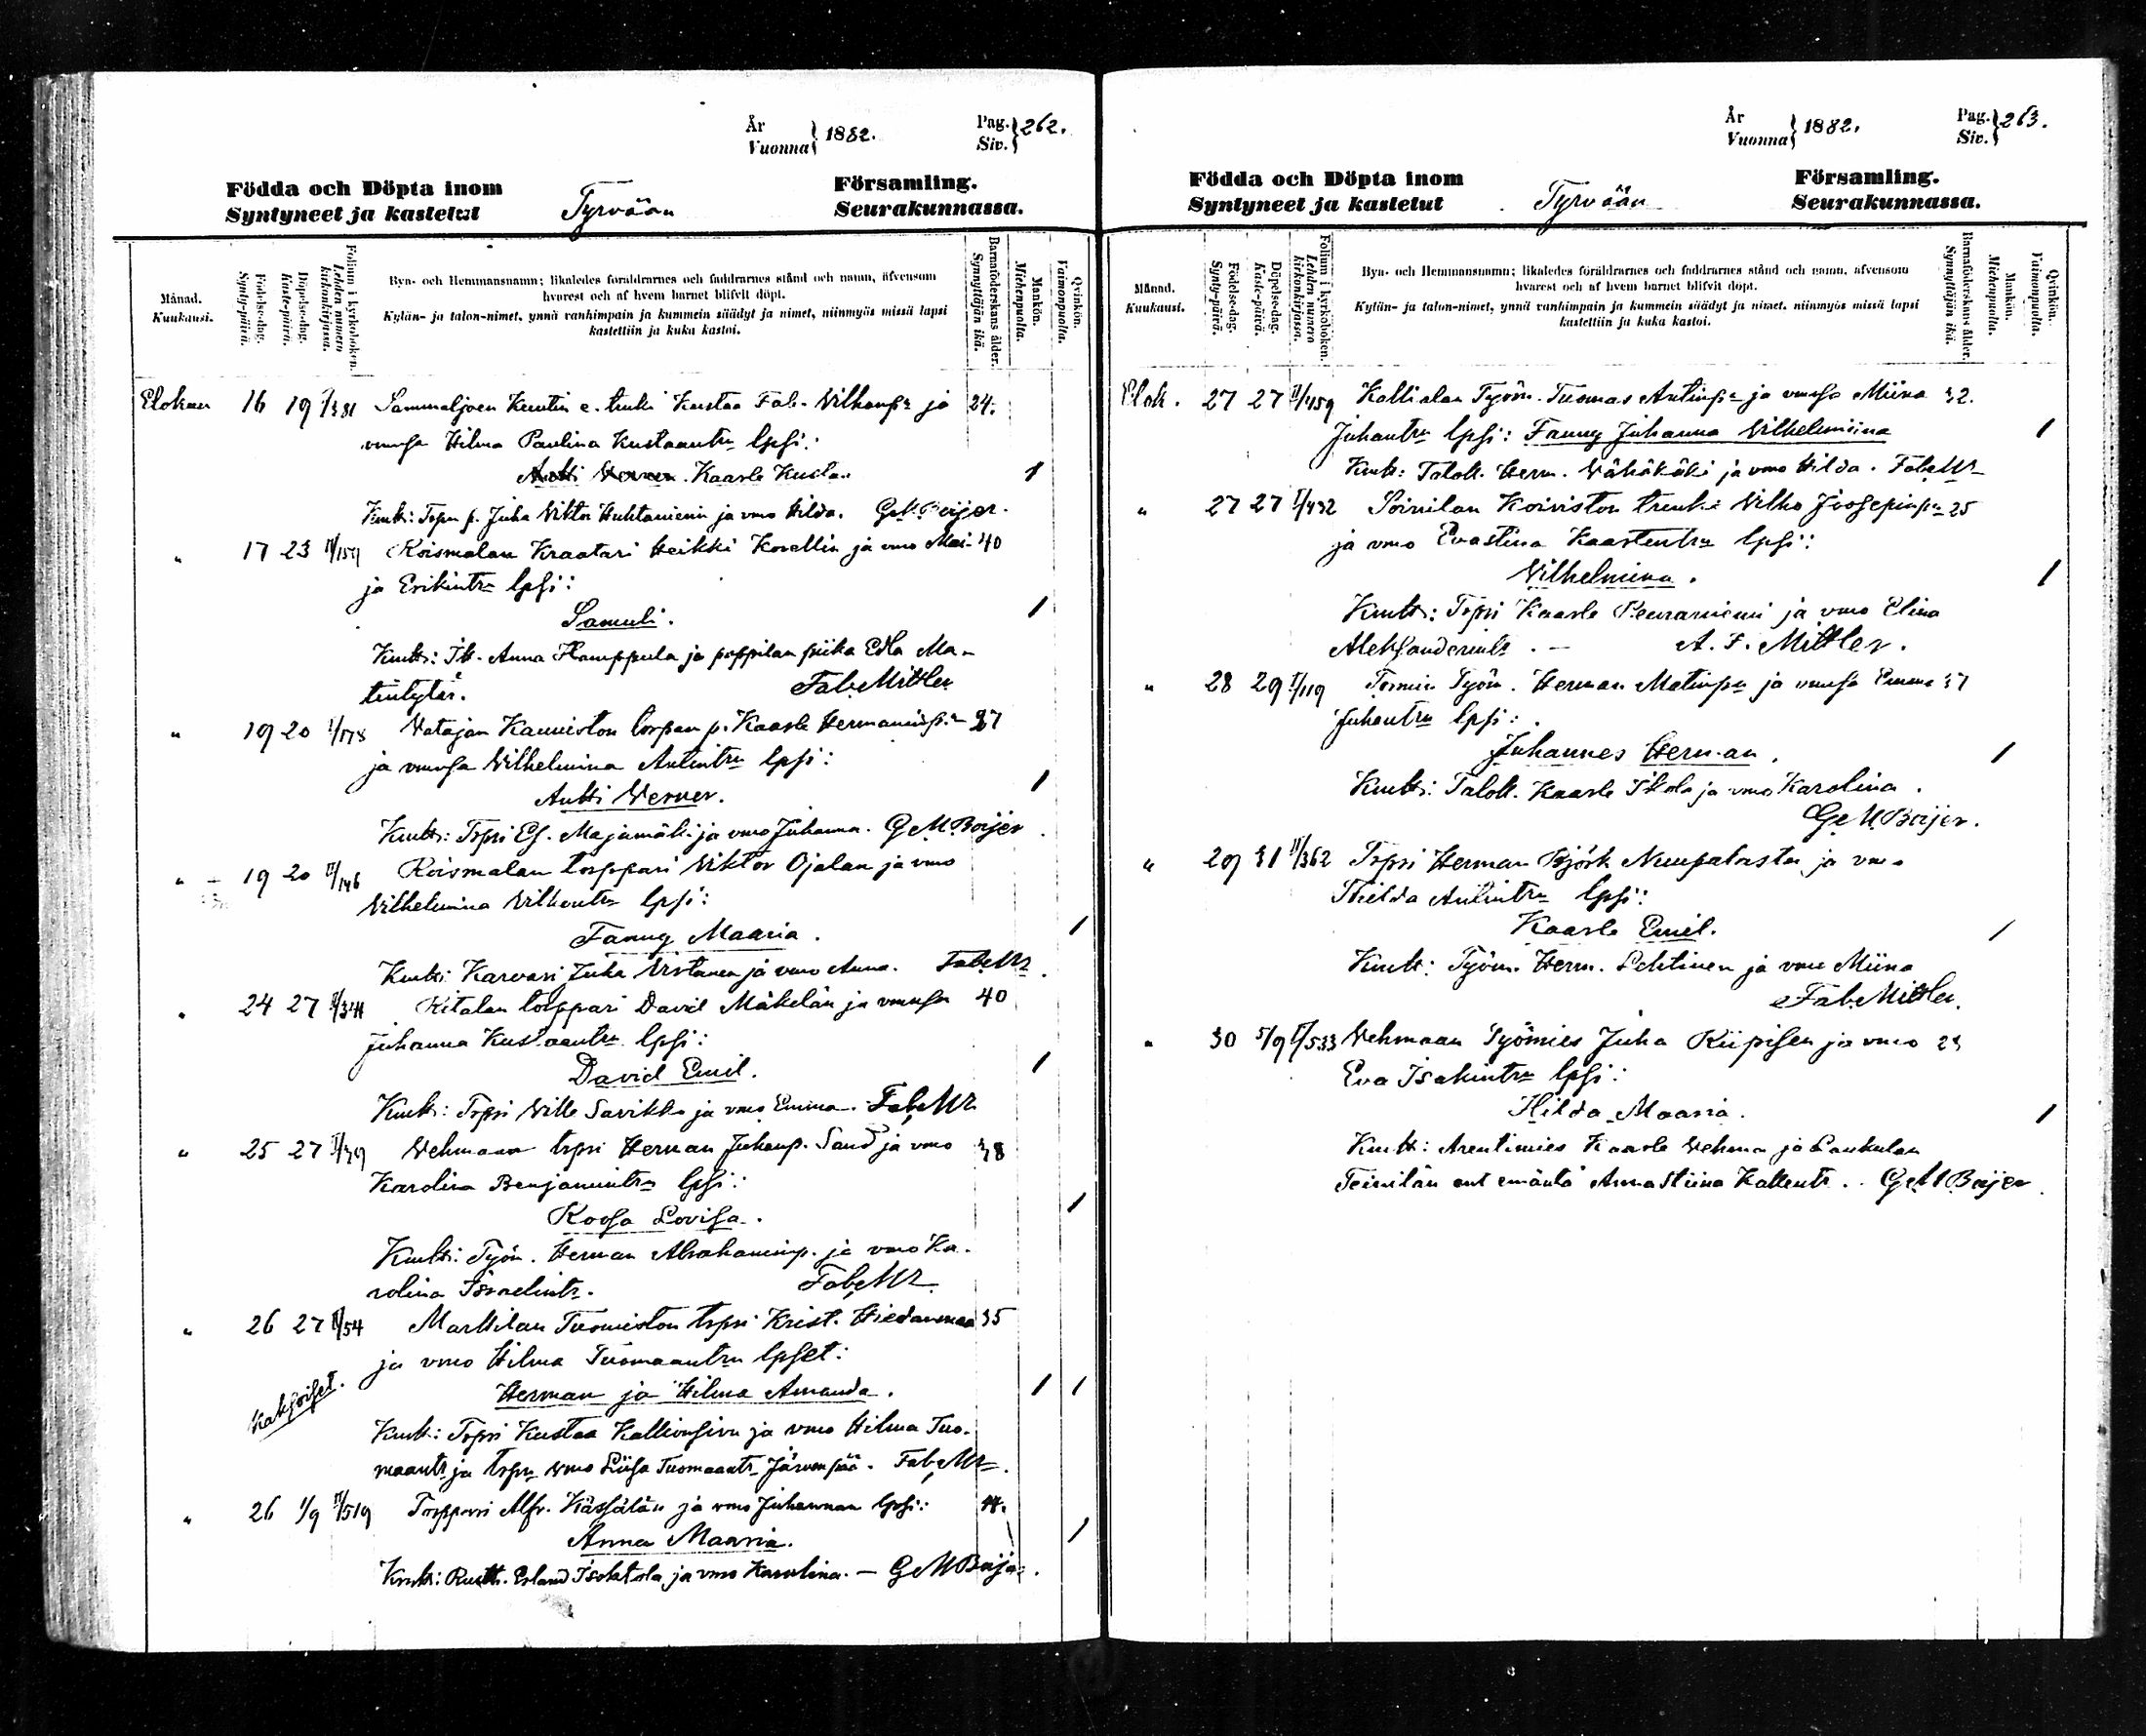 År
Vuonna } 1882.
Pag.
Siv. } 262.
Födda och Döpta inom
Syntyneet ja kastetut
Tyrvään
Församling.
Seurakunnassa.
Månad.
Kuukausi.
Födelsedag.
Synty-päivä.
Döpelsedag.
Kaste-päivä.
Folium i kyrkoboken.
Lehden numero kirkonkirjassa.
Byn- och Hemmansnamn; likaledes föräldrarnes och faddrarnes stånd och namn, äfvensom
hvarest och af hvem barnet blifvit döpt.
Kylän- ja talon-nimet, ynnä vanhimpain ja kummein säädyt ja nimet, niinmyös missä lapsi
kastettiin ja kuka kastoi.
Barnaföderskans ålder.
Synnyttäjän ikä.
Mankön.
Miehenpuolta.
Qvinkön.
Vaimonpuolta.
Elokuu 16 19 I/381 Sammaljoen Kuutin e. truki Kustaa Fab. Vilhonp. ja 24.
vmosa Hilma Paulina Kustaantr lpsi:
Antti Verner. Kaarle Kusta. 1
Kmtt: Tspn p. Juha Viktor Huhtaniemi ja vmo Hilda. G M Boijer.
" 17 23 II/159 Koismalan Kraatari Heikki Korellin ja vmo Mai- 40
ja Erikintr lpsi:
Samuli. 1
Kmtt: Itt. Anna Hamppula ja pappilan piika Edla Ma-
tintytär. Fab. Mittler
" 19 20 I/178 Vatajan Kanniston torpan p. Kaarle Hermaninp. 27
ja vmosa Vilhelmina Antintr lpsi:
Antti Verner. 1
Kmtt: Tspri Ef. Majamäki ja vmo Juhanna. G M Boijer
" 19 20 II/146 Koismalan torppari Viktor Ojalan ja vmo
Vilhelmina Vilhontr lpsi:
Fanny Maaria. 1
Kmtt: Karvari Juha Virtanen ja vmo Anna. Fab. Mr
" 24 27 II/344 Ritalan torppari David Mäkelän ja vmosa 40
Juhanna Kustaantr lpsi:
David Emil. 1
Kmtt: Tspri Ville Savikko ja vmo Emma. Fab. Mr
" 25 27 I/39 Vehmaan tspri Herman Juhanp. Sand ja vmo 38
Karolina Benjamintr lpsi:
Roosa Lovisa. 1
Kmtt: Työm. Herman Abrahaminp. ja vmo Ka-
rolina Israelintr. Fab. Mr
" 26 27 II/54 Marttilan Tuomiston tspri Krist. Hiedanmaa 35
ja vmo Hilma Tuomaantr lpset:
Kaksoiset.
Herman ja Hilma Amanda. 1 1
Kmtt: Tspri Kustaa Kallionsivu ja vmo Hilma Tuo-
maantr ja tspn vmo Liisa Tuomaantr Järvenpää. Fab. Mr.
" 26 1/9 II/519 Torppari Alfr. Kässälän ja vmo Juhannan lpsi: 44.
Anna Maaria. 1
Kmtt: Rustt. Erland Isotalola ja vmo Karolina. — G M Boijer.
År
Vuonna } 1882.
Pag.
Siv. } 263.
Födda och Döpta inom
Syntyneet ja kastetut
Tyrvään
Församling.
Seurakunnassa.
Månad.
Kuukausi.
Födelsedag.
Synty-päivä.
Döpelsedag.
Kaste-päivä.
Folium i kyrkoboken.
Lehden numero kirkonkirjassa.
Byn- och Hemmansnamn; likaledes föräldrarnes och faddrarnes stånd och namn, äfvensom
hvarest och af hvem barnet blifvit döpt.
Kylän- ja talon-nimet, ynnä vanhimpain ja kummein säädyt ja nimet, niinmyös missä lapsi
kastettiin ja kuka kastoi.
Barnaföderskans ålder.
Synnyttäjän ikä.
Mankön.
Miehenpuolta.
Qvinkön.
Vaimonpuolta.
Elok. 27 27 II/459 Kallialan Työm. Tuomas Antinp. ja vmosa Miina 32.
Juhantr lpsi: Fanny Juhanna Vilhelmiina 1
Kmtt: Taloll. Herm. Vähäkäki ja vmo Hilda. Fab. Mr
" 27 27 I/432 Soinilan Koiviston trenki Vilho Joosepinp. 25
ja vmo Evastina Kaarlentr lpsi:
Vilhelmina. 1
Kmtt: Tspri Kaarle Peuraniemi ja vmo Elina
Aleksanderintr. — A. F. Mittler.
" 28 29 I/119 Tomin Työm. Herman Matinp. ja vmosa Emma 37
Juhantr lpsi:
Juhannes Herman. 1
Kmtt: Taloll. Kaarle Itkola ja vmo Karolina.
G M Boijer.
" 29 31 II/362 Tspri Herman Björk Nuupalasta ja vmo
Hilda Antintr lpsi:
Kaarle Emil. 1
Kmtt: Työm. Herm. Lehtinen ja vmo Miina
Fab. Mittler.
" 30 5/9 II/533 Vehmaan Työmies Juha Kiipisen ja vmo 23
Eva Isakintr lpsi:
Hilda Maaria. 1
Kmtt: Arentimies Kaarle Vehma ja Laukulan
Teinilän ent emäntä Anna Stiina Kallentr. G M Boijer